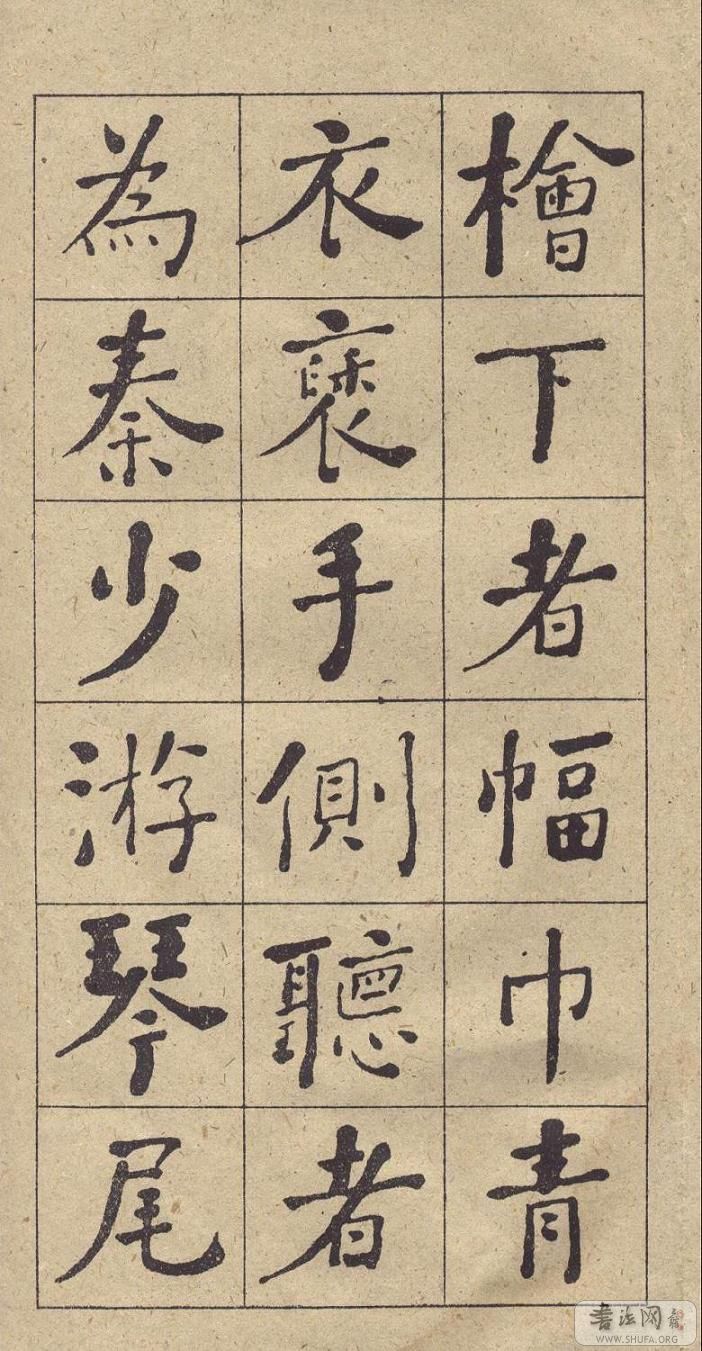 檜下者幅巾青
衣褎手側聽者
為秦少游琴尾
書法网
WWW.SHUFA.ORG